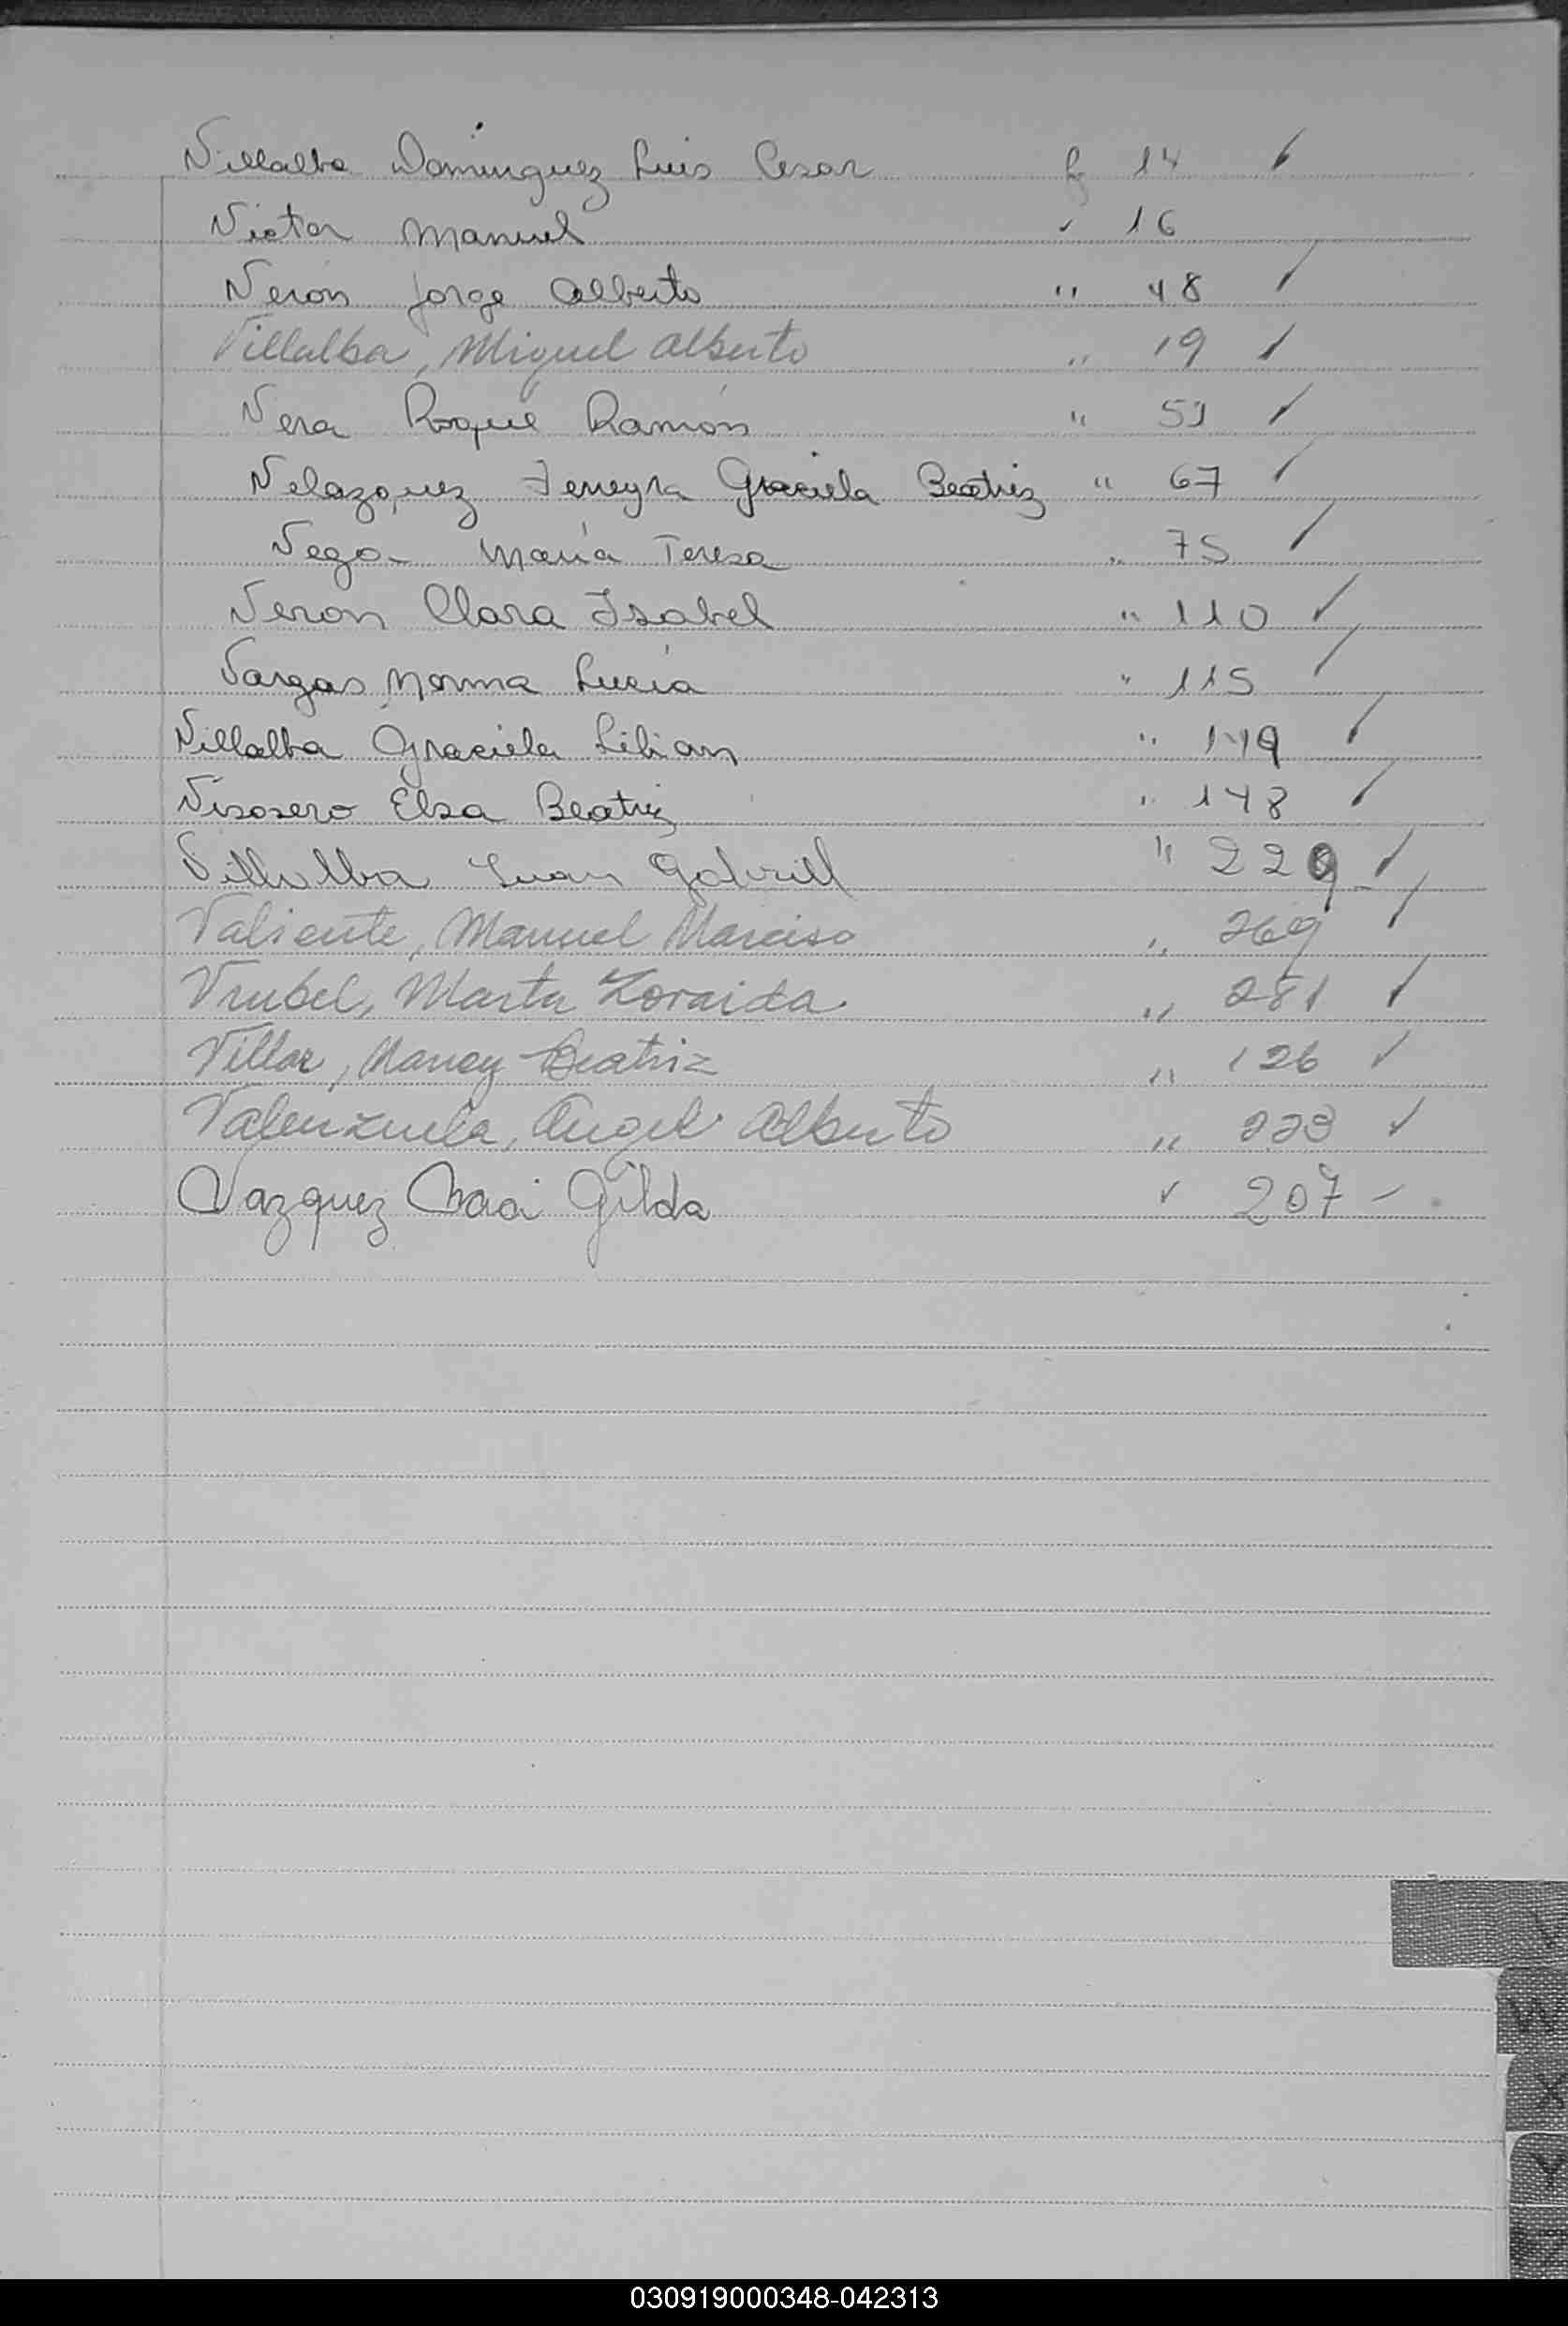 Villalba Dominguez Luis Cesar f 14 ✓
Victor Manuel " 16
Verón Jorge Alberto " 48 ✓
Villalba, Miguel Alberto " 19 ✓
Vera Roque Ramón " 51 ✓
Velazquez Ferreyra Graciela Beatriz " 67 ✓
Vega María Teresa " 75 ✓
Veron Clara Isabel " 110 ✓
Vargas Norma Lucía " 115 ✓
Villalba Graciela Lilian " 119 ✓
Visosero Elsa Beatriz " 148 ✓
Villalba Juan Gabriel " 229 ✓
Valiente, Manuel Narciso " 269 ✓
Vrubel, Marta Zoraida " 281 ✓
Villar, Nancy Beatriz " 126 ✓
Valenzuela, Angel Alberto " 223 ✓
Vazquez Gilda " 207 -
V
W
X
Y
030919000348-042313